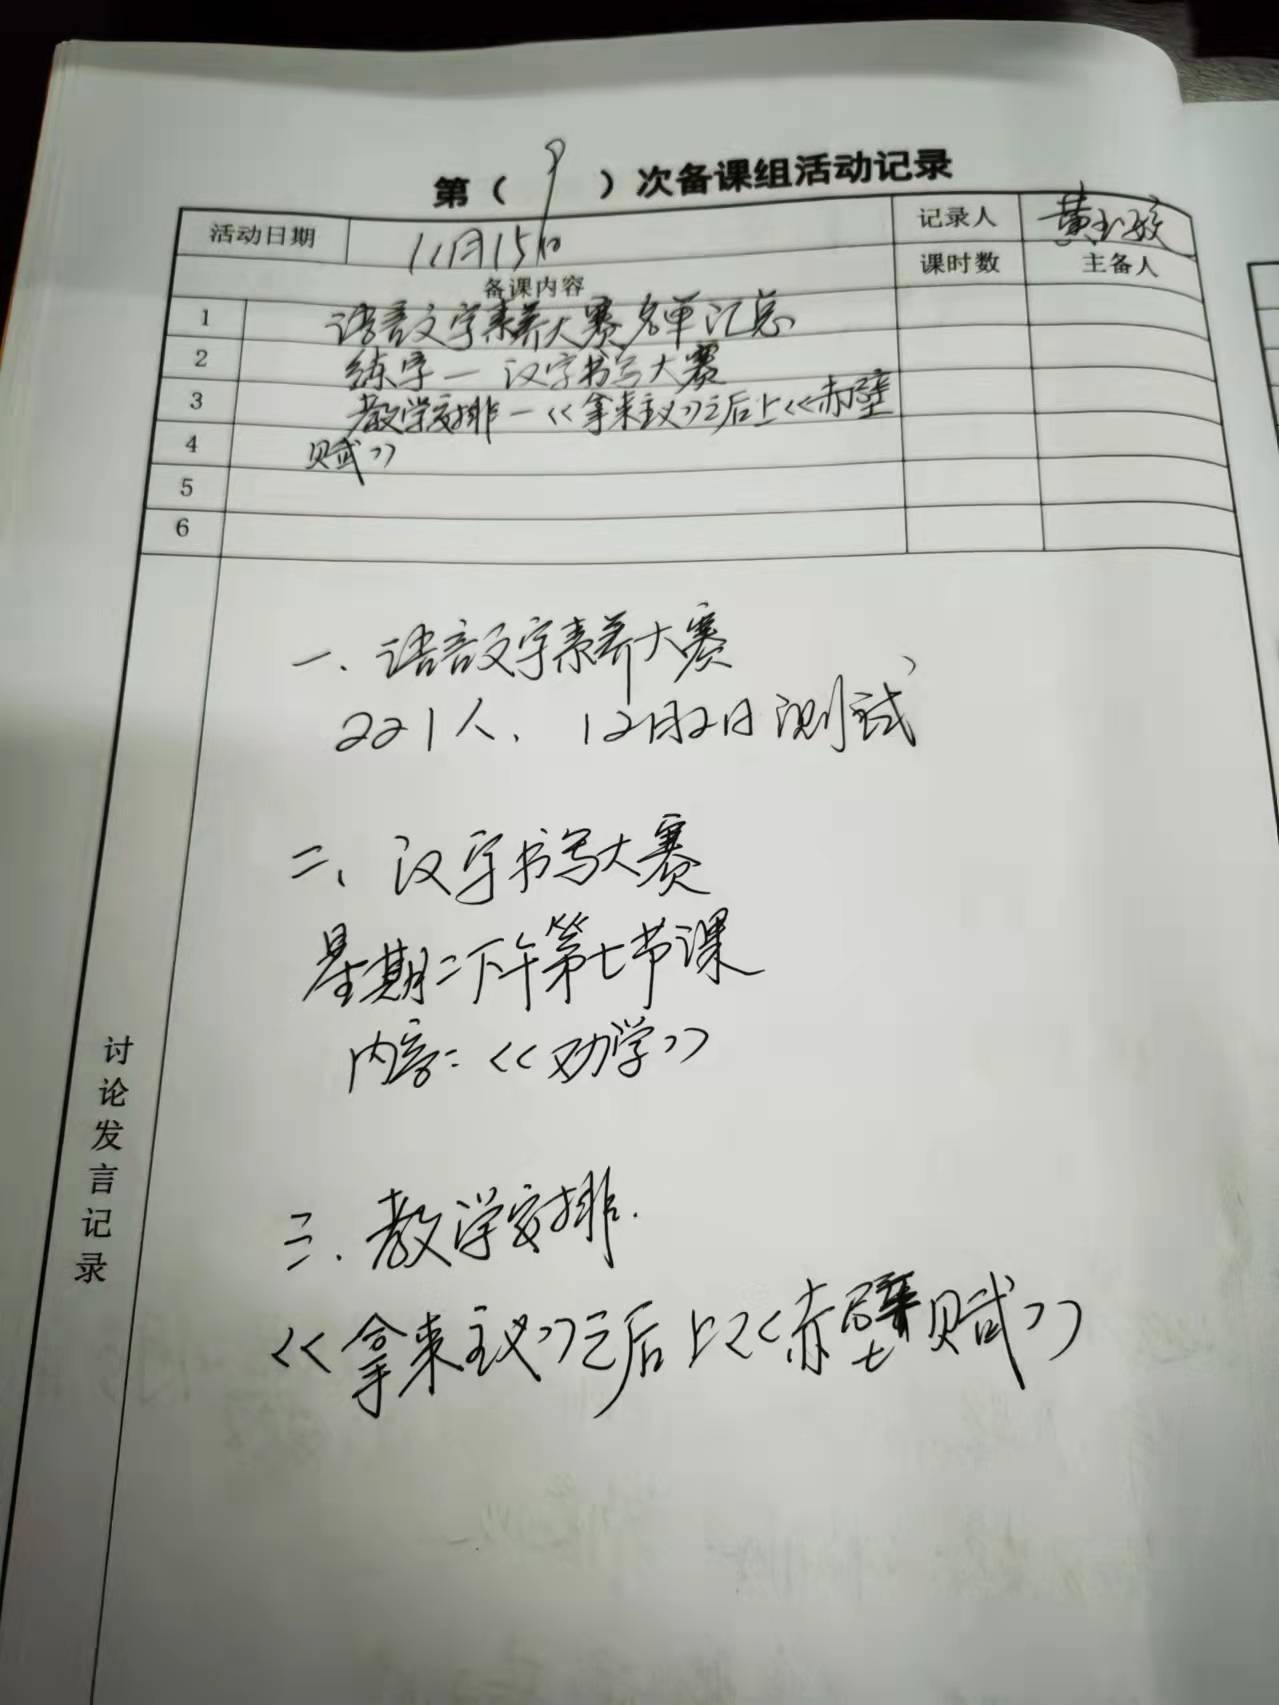 第（9）次备课组活动记录
活动日期 11月15日 记录人 黄玉姣
备课内容 课时数 主备人
1 语言文字素养大赛名单汇总
2 练字—汉字书写大赛
3 教学安排—《拿来主义》之后上《赤壁
4 赋》
5
6
讨论发言记录
一、语言文字素养大赛
221人、12月2日测试
二、汉字书写大赛
星期二下午第七节课
内容：《劝学》
三、教学安排.
《拿来主义》之后上《赤壁赋》